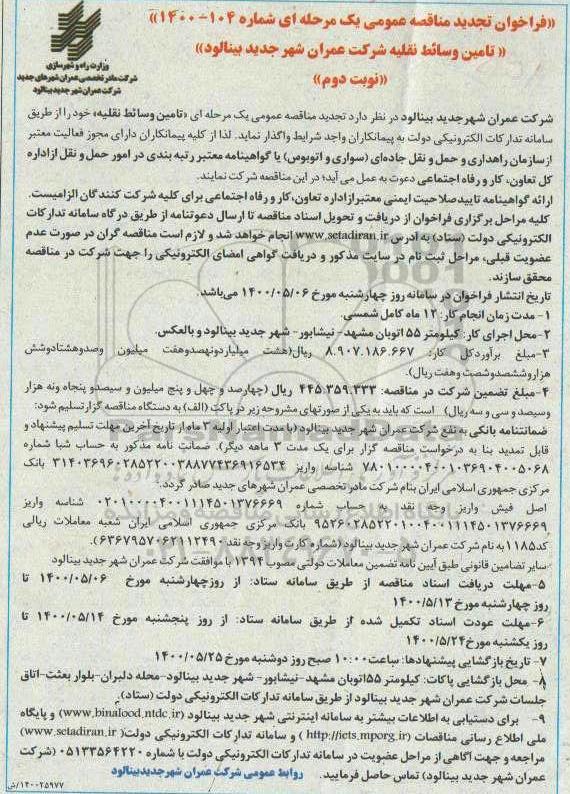 «فراخوان تجدید مناقصه عمومی یک مرحله ای شماره ۱۰۴-۱۴۰۰»
« تامین وسائط نقلیه شرکت عمران شهر جدید بینالود»
«نوبت دوم»
وزارت راه و شهرسازی
شرکت مادر تخصصی عمران شهرهای جدید
شرکت عمران شهر جدید بینالود
شرکت عمران شهرجدید بینالود در نظر دارد تجدید مناقصه عمومی یک مرحله ای «تامین وسائط نقلیه» خود را از طریق
سامانه تدارکات الکترونیکی دولت به پیمانکاران واجد شرایط واگذار نماید. لذا از کلیه پیمانکاران دارای مجوز فعالیت معتبر
از سازمان راهداری و حمل و نقل جاده‌ای (سواری و اتوبوس) یا گواهینامه معتبر رتبه بندی در امور حمل و نقل از اداره
کل تعاون، کار و رفاه اجتماعی دعوت به عمل می آید؛ در این مناقصه شرکت نمایند.
ارائه گواهینامه تاییدصلاحیت ایمنی معتبر از اداره تعاون، کار و رفاه اجتماعی برای کلیه شرکت کنندگان الزامیست.
کلیه مراحل برگزاری فراخوان از دریافت و تحویل اسناد مناقصه تا ارسال دعوتنامه از طریق درگاه سامانه تدارکات
الکترونیکی دولت (ستاد) به آدرس www.setadiran.ir انجام خواهد شد و لازم است مناقصه گران در صورت عدم
عضویت قبلی، مراحل ثبت نام در سایت مذکور و دریافت گواهی امضای الکترونیکی را جهت شرکت در مناقصه
محقق سازند.
تاریخ انتشار فراخوان در سامانه روز چهارشنبه مورخ ۱۴۰۰/۰۵/۰۶ می‌باشد.
۱- مدت زمان انجام کار: ۱۲ ماه کامل شمسی.
۲-محل اجرای کار: کیلومتر ۵۵ اتوبان مشهد- نیشابور- شهر جدید بینالود و بالعکس.
۳-مبلغ برآوردکل کار: ۸.۹۰۷.۱۸۶.۶۶۷ ریال(هشت میلیاردونهصدوهفت میلیون وصدوهشتادوشش
هزاروششصدوشصت وهفت ریال).
۴-مبلغ تضمین شرکت در مناقصه: ۴۴۵.۳۵۹.۳۳۳ ریال (چهارصد و چهل و پنج میلیون و سیصدو پنجاه ونه هزار
وسیصد و سی و سه ریال) است که باید به یکی از صورتهای مشروحه زیر در پاکت (الف) به دستگاه مناقصه گزار تسلیم شود:
ضمانتنامه بانکی به نفع شرکت عمران شهر جدید بینالود (با مدت اعتبار اولیه ۳ ماه از تاریخ آخرین مهلت تسلیم پیشنهاد و
قابل تمدید بنا به درخواست مناقصه گزار برای یک مدت ۳ ماهه دیگر). ضمانت نامه مذکور به حساب شبا شماره
شناسه واریز بانک
مرکزی جمهوری اسلامی ایران بنام شرکت مادر تخصصی عمران شهرهای جدید صادر گردد.
اصل فیش واریز وجه نقد به حساب شماره شناسه واریز
بانک مرکزی جمهوری اسلامی ایران شعبه معاملات ریالی
کد۱۱۸۵ به نام شرکت عمران شهر جدید بینالود (شماره کارت واریز وجه نقد ۶۳۶۷۹۵۷۰۶۲۱۱۲۴۹۰).
سایر تضامین قانونی طبق آیین نامه تضمین معاملات دولتی مصوب ۱۳۹۴ با موافقت شرکت عمران شهر جدید بینالود
۵-مهلت دریافت اسناد مناقصه از طریق سامانه ستاد: از روزچهارشنبه مورخ ۱۴۰۰/۰۵/۰۶ تا
روز چهارشنبه مورخ ۱۴۰۰/۵/۱۳
۶-مهلت عودت اسناد تکمیل شده از طریق سامانه ستاد: از روز پنجشنبه مورخ ۱۴۰۰/۰۵/۱۴ تا
روز یکشنبه مورخ۱۴۰۰/۵/۲۴
۷- تاریخ بازگشایی پیشنهادها: ساعت۱۰:۰۰ صبح روز دوشنبه مورخ ۱۴۰۰/۰۵/۲۵
۸- محل بازگشایی پاکات: کیلومتر ۵۵اتوبان مشهد-نیشابور- شهر جدید بینالود-محله دلبران-بلوار بعثت-اتاق
جلسات شرکت عمران شهر جدید بینالود از طریق سامانه تدارکات الکترونیکی دولت (ستاد).
۹- برای دستیابی به اطلاعات بیشتر به سامانه اینترنتی شهر جدید بینالود (www.binalood.ntdc.ir) و پایگاه
ملی اطلاع رسانی مناقصات (http://iets.mporg.ir) و سامانه تدارکات الکترونیکی دولت( www.setadiran.ir)
مراجعه و جهت آگاهی از مراحل عضویت در سامانه تدارکات الکترونیکی دولت با شماره ۰۵۱۳۳۵۶۴۲۲۰ (شرکت
عمران شهر جدید بینالود) تماس حاصل فرمایید.
روابط عمومی شرکت عمران شهر جدید بینالود
۱۴۰۰۲۵۹۷۷/ش